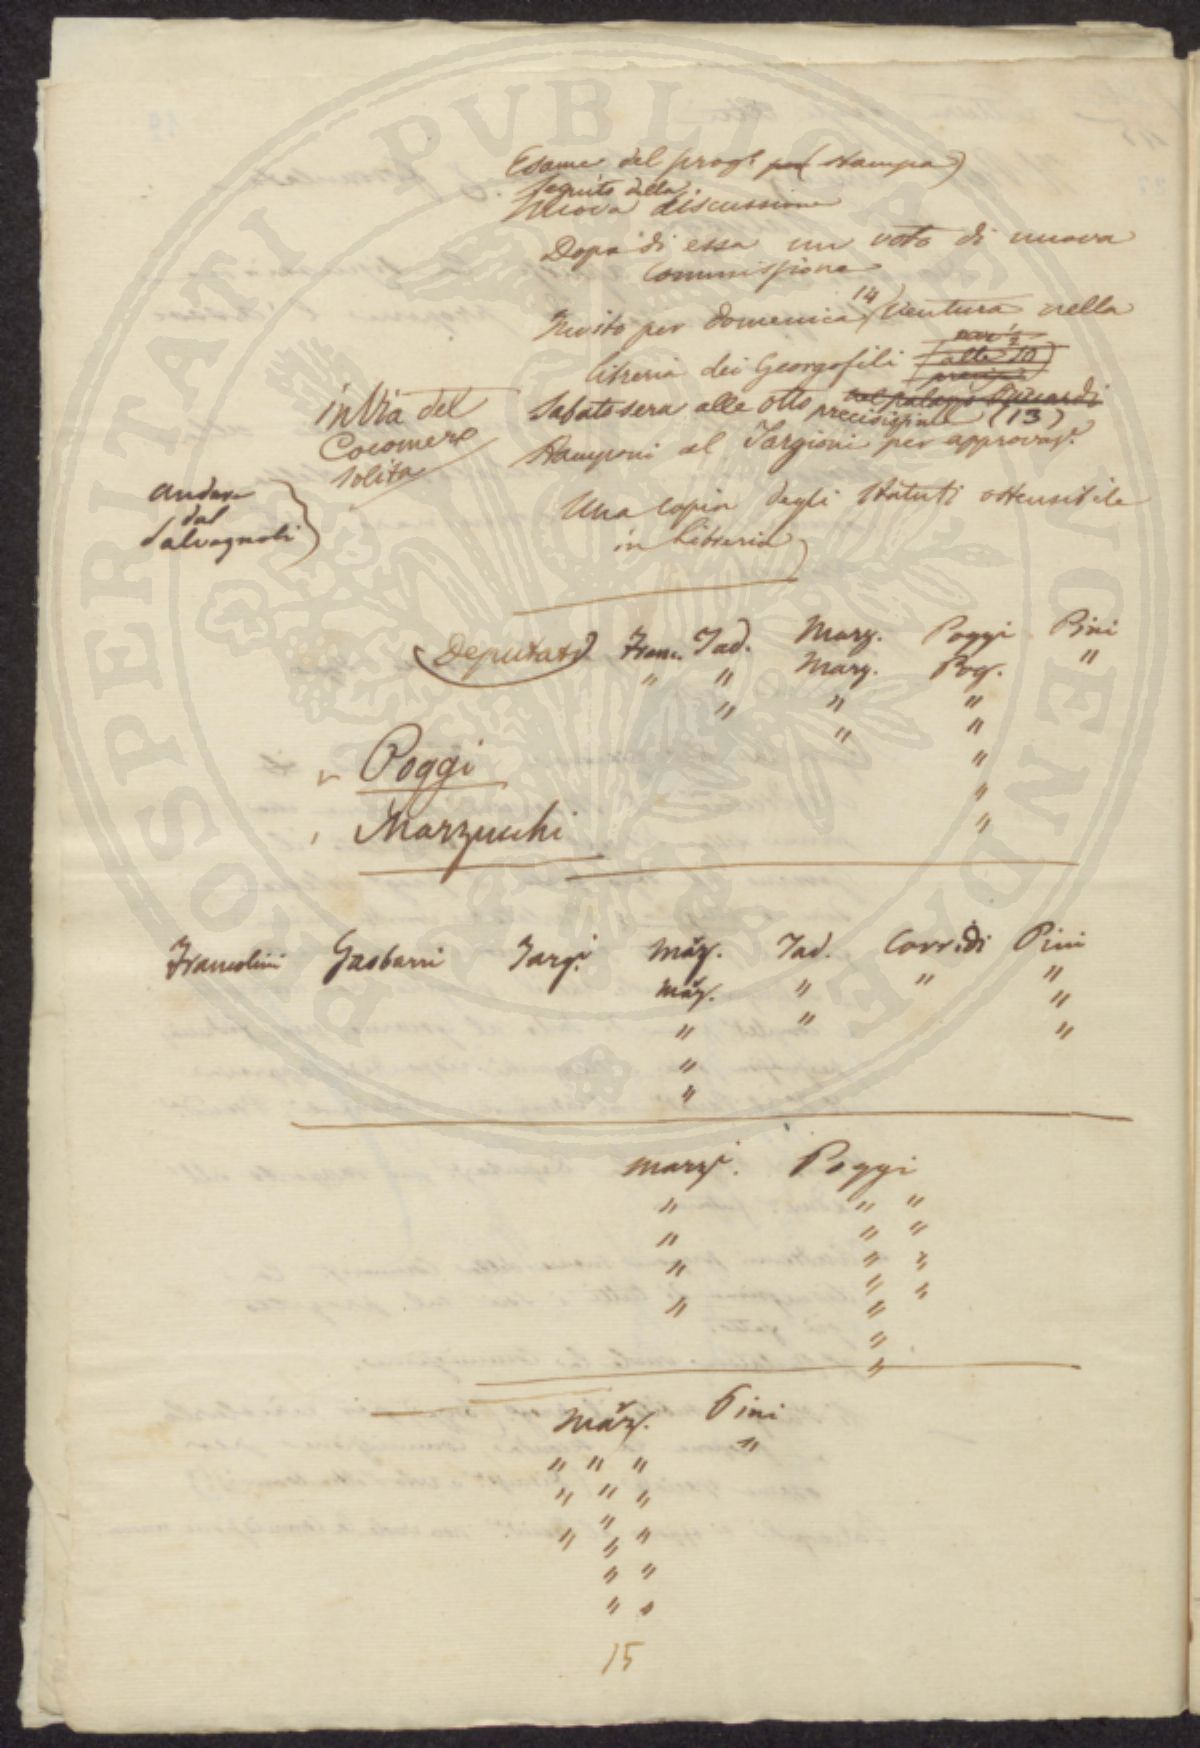 PROSPERITATI PUBLICAE AUGENDAE
Esame del prog.to per stampa
Seguito della
Nuova discussione
Dopo di essa un voto di nuova
Commissione
Invito per domenica 14 ventura nella
libreria dei Georgofili alle 10
precise
in Via del
Cocomero
solita
Sabato sera alle otto nel palazzo Riccardi
precisissime (13)
Stamponi al Targioni per approvaz.e
andare
dal
Salvagnoli
Una copia degli Statuti ostensibile
in Libreria
Deputati Franc. Tad. Marz. Poggi Pini
" " Marz. Pog. "
" " "
" "
"
"
"
Poggi
Marzucchi
Francolini Gasbarri Targi. Marz. Tad. Corridi Pini
Marz. " " "
" " "
" "
"
"
Marz. Poggi
" " "
" " "
" " "
" " "
"
"
"
Marz. Pini
" " " "
" " "
"
" " "
" "
" "
15